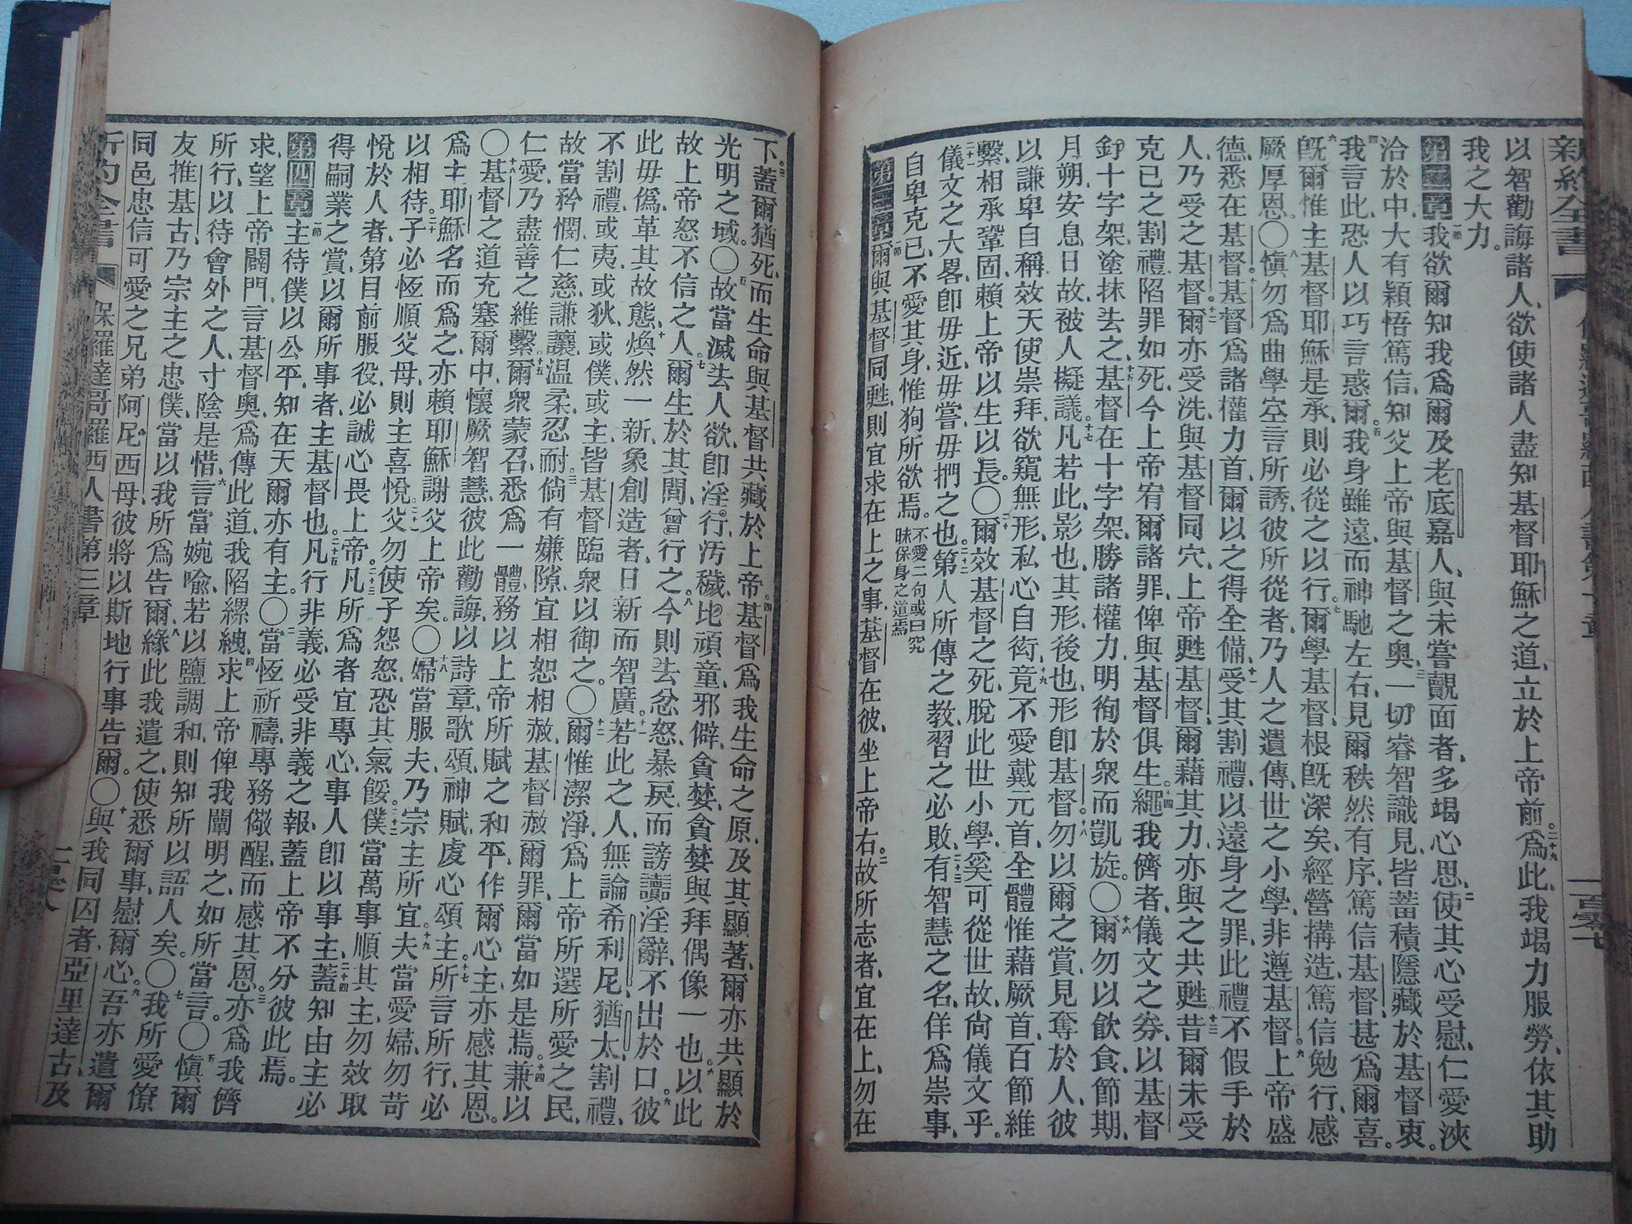 新約全書
以智勸誨諸人、欲使諸人盡知基督耶穌之道、立於上帝前、爲此、我竭力服勞、依其助
我之大力。
第二章我欲爾知我爲爾及老底嘉人、與未嘗覿面者、多竭心思、使其心受慰、仁愛浹
洽於中、大有穎悟篤信、知父上帝與基督之奧、一切睿智識見、皆蓄積隱藏於基督衷。
我言此、恐人以巧言惑爾、我身雖遠、而神馳左右、見爾秩然有序、篤信基督、甚爲爾喜。
旣爾惟主基督耶穌是承、則必從之以行、爾學基督、根旣深矣、經營構造、篤信勉行、感
厥厚恩、〇愼勿爲曲學空言所誘、彼所從者、乃人之遺傳、世之小學、非遵基督、上帝盛
德、悉在基督、基督爲諸權力首、爾以之得全備、受其割禮、以遠身之罪、此禮不假手於
人、乃受之基督、爾亦受洗、與基督同穴、上帝甦基督、爾藉其力、亦與之共甦、昔爾未受
克已之割禮、陷罪如死、今上帝宥爾諸罪、俾與基督俱生、繩我儕者、儀文之劵、以基督
釘十字架、塗抹去之、基督在十字架、勝諸權力、明徇於衆而凱旋、〇爾勿以飮食、節期、
月朔、安息日、故、被人擬議、凡若此、影也、其形後也、形卽基督、勿以爾之賞、見奪於人、彼
以謙卑自稱、效天使崇拜、欲窺無形、私心自衒、竟不愛戴元首、全體惟藉厥首、百節維
繫、相承鞏固、賴上帝以生以長、〇爾效基督之死、脫此世小學、奚可從世故、尙儀文乎。
儀文之大畧、卽毋近、毋嘗、毋捫之也、第人所傳之敎、習之必敗、有智慧之名、佯爲崇事、
自卑克己、不愛其身、惟狥所欲焉。不愛二句或曰究昧保身之道焉
第三章爾與基督同甦、則宜求在上之事、基督在彼、坐上帝右、故所志者、宜在上、勿在
下、蓋爾猶死、而生命與基督共藏於上帝、基督爲我生命之原、及其顯著、爾亦共顯於
光明之域、〇故當滅去人欲、卽淫行、汚穢、比頑童、邪僻、貪婪、貪婪與拜偶像一也、以此
故上帝怒不信之人、爾生於其間、曾行之、今則去忿怒、暴戾、而謗讟淫辭、不出於口、彼
此毋僞、革其故態、煥然一新、象創造者、日新而智廣、若此之人、無論希利尼、猶太、割禮、
不割禮、或夷、或狄、或僕、或主、皆基督臨衆以御之、〇爾惟潔淨、爲上帝所選所愛之民、
故當矜憫、仁慈、謙讓、温柔、忍耐、倘有嫌隙、宜相恕相赦、基督赦爾罪、爾當如是焉、兼以
仁愛、乃盡善之維繫、爾衆蒙召、悉爲一體、務以上帝所賦之和平、作爾心主、亦感其恩。
〇基督之道、充塞爾中、懷厥智慧、彼此勸誨、以詩章歌頌神賦、虔心頌主、所言所行、必
爲主耶穌名而爲之、亦賴耶穌謝父上帝矣、〇婦當服夫、乃宗主所宜、夫當愛婦、勿苛
以相待、子必恆順父母、則主喜悅、父勿使子怨怒、恐其氣餒、僕當萬事順其主、勿效取
悅於人者、第目前服役、必誠心畏上帝、凡所爲者、宜專心、事人卽以事主、蓋知由主必
得嗣業之賞、以爾所事者、主基督也、凡行非義、必受非義之報、蓋上帝不分彼此焉。
第四章主待僕以公平、知在天爾亦有主、〇當恆祈禱、專務儆醒、而感其恩、亦爲我儕
求、望上帝闢門、言基督奧、爲傳此道、我陷縲絏、求上帝俾我闡明之、如所當言、〇愼爾
所行、以待會外之人、寸陰是惜、言當婉喩、若以鹽調和、則知所以語人矣、〇我所愛僚
友推基古、乃宗主之忠僕、當以我所爲告爾、緣此我遣之、使悉爾事、慰爾心、吾亦遣爾
同邑忠信可愛之兄弟阿尼西母、彼將以斯地行事告爾、〇與我同囚者、亞里達古及
新約全書 保羅達哥羅西人書第三章